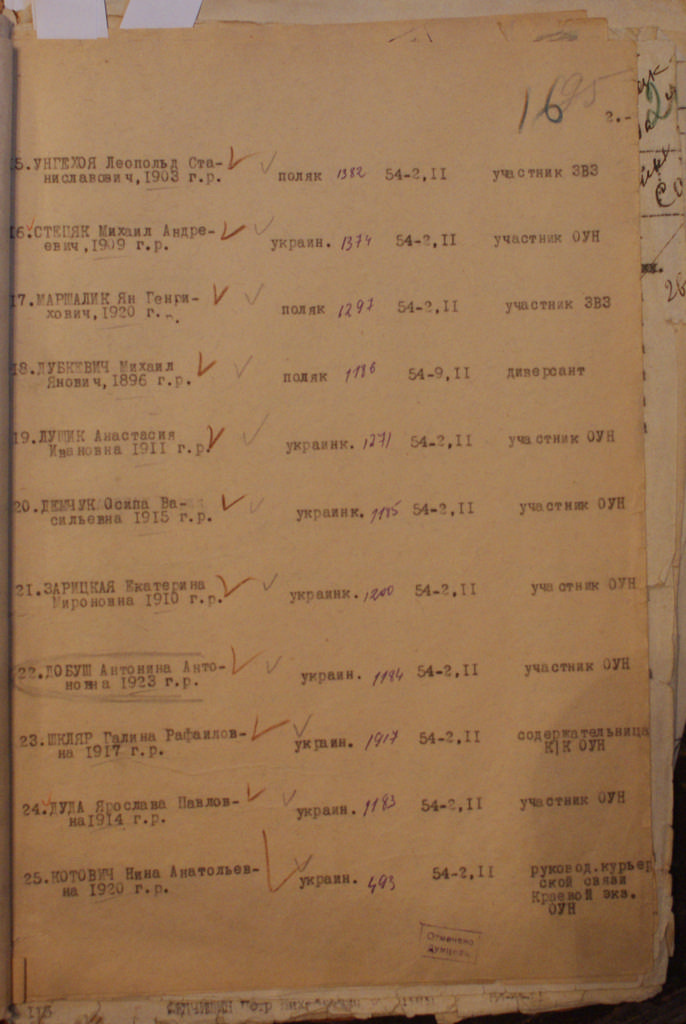 16
95
2.-
5. УНГЕХОЯ Леопольд Ста- поляк 1382 54-2,II участник ЗВЗ
ниславович, 1903 г.р.
16. СТЕЦЯК Михаил Андре- украин. 1374 54-2,II участник ОУН
евич, 1909 г.р.
17. МАРШАЛИК Ян Генри- поляк 1297 54-2,II участник ЗВЗ
хович, 1920 г.
18. ЛУБКЕВИЧ Михаил поляк 1186 54-9,II диверсант
Янович, 1896 г.р.
19. ЛУЩИК Анастасия украинк. 1271 54-2,II участник ОУН
Ивановна 1911 г.р.
20. ДЕМЧУК Осипа Ва- украинк. 1185 54-2,II участник ОУН
сильевна 1915 г.р.
21. ЗАРИЦКАЯ Екатерина украинк. 1200 54-2,II участник ОУН
Мироновна 1910 г.р.
22. ДОБУШ Антонина Анто- украин. 1184 54-2,II участник ОУН
новна 1923 г.р.
23. ШКЛЯР Галина Рафаилов- украин. 1917 54-2,II содержательница
на 1917 г.р. К|К ОУН
24. ДУДА Ярослава Павлов- украин. 1183 54-2,II участник ОУН
на1914 г.р.
25. КОТОВИЧ Нина Анатольев- украин. 493 54-2,II руковод.курьер
на 1920 г.р. ской связи
Краевой экз.
ОУН
Отмечено